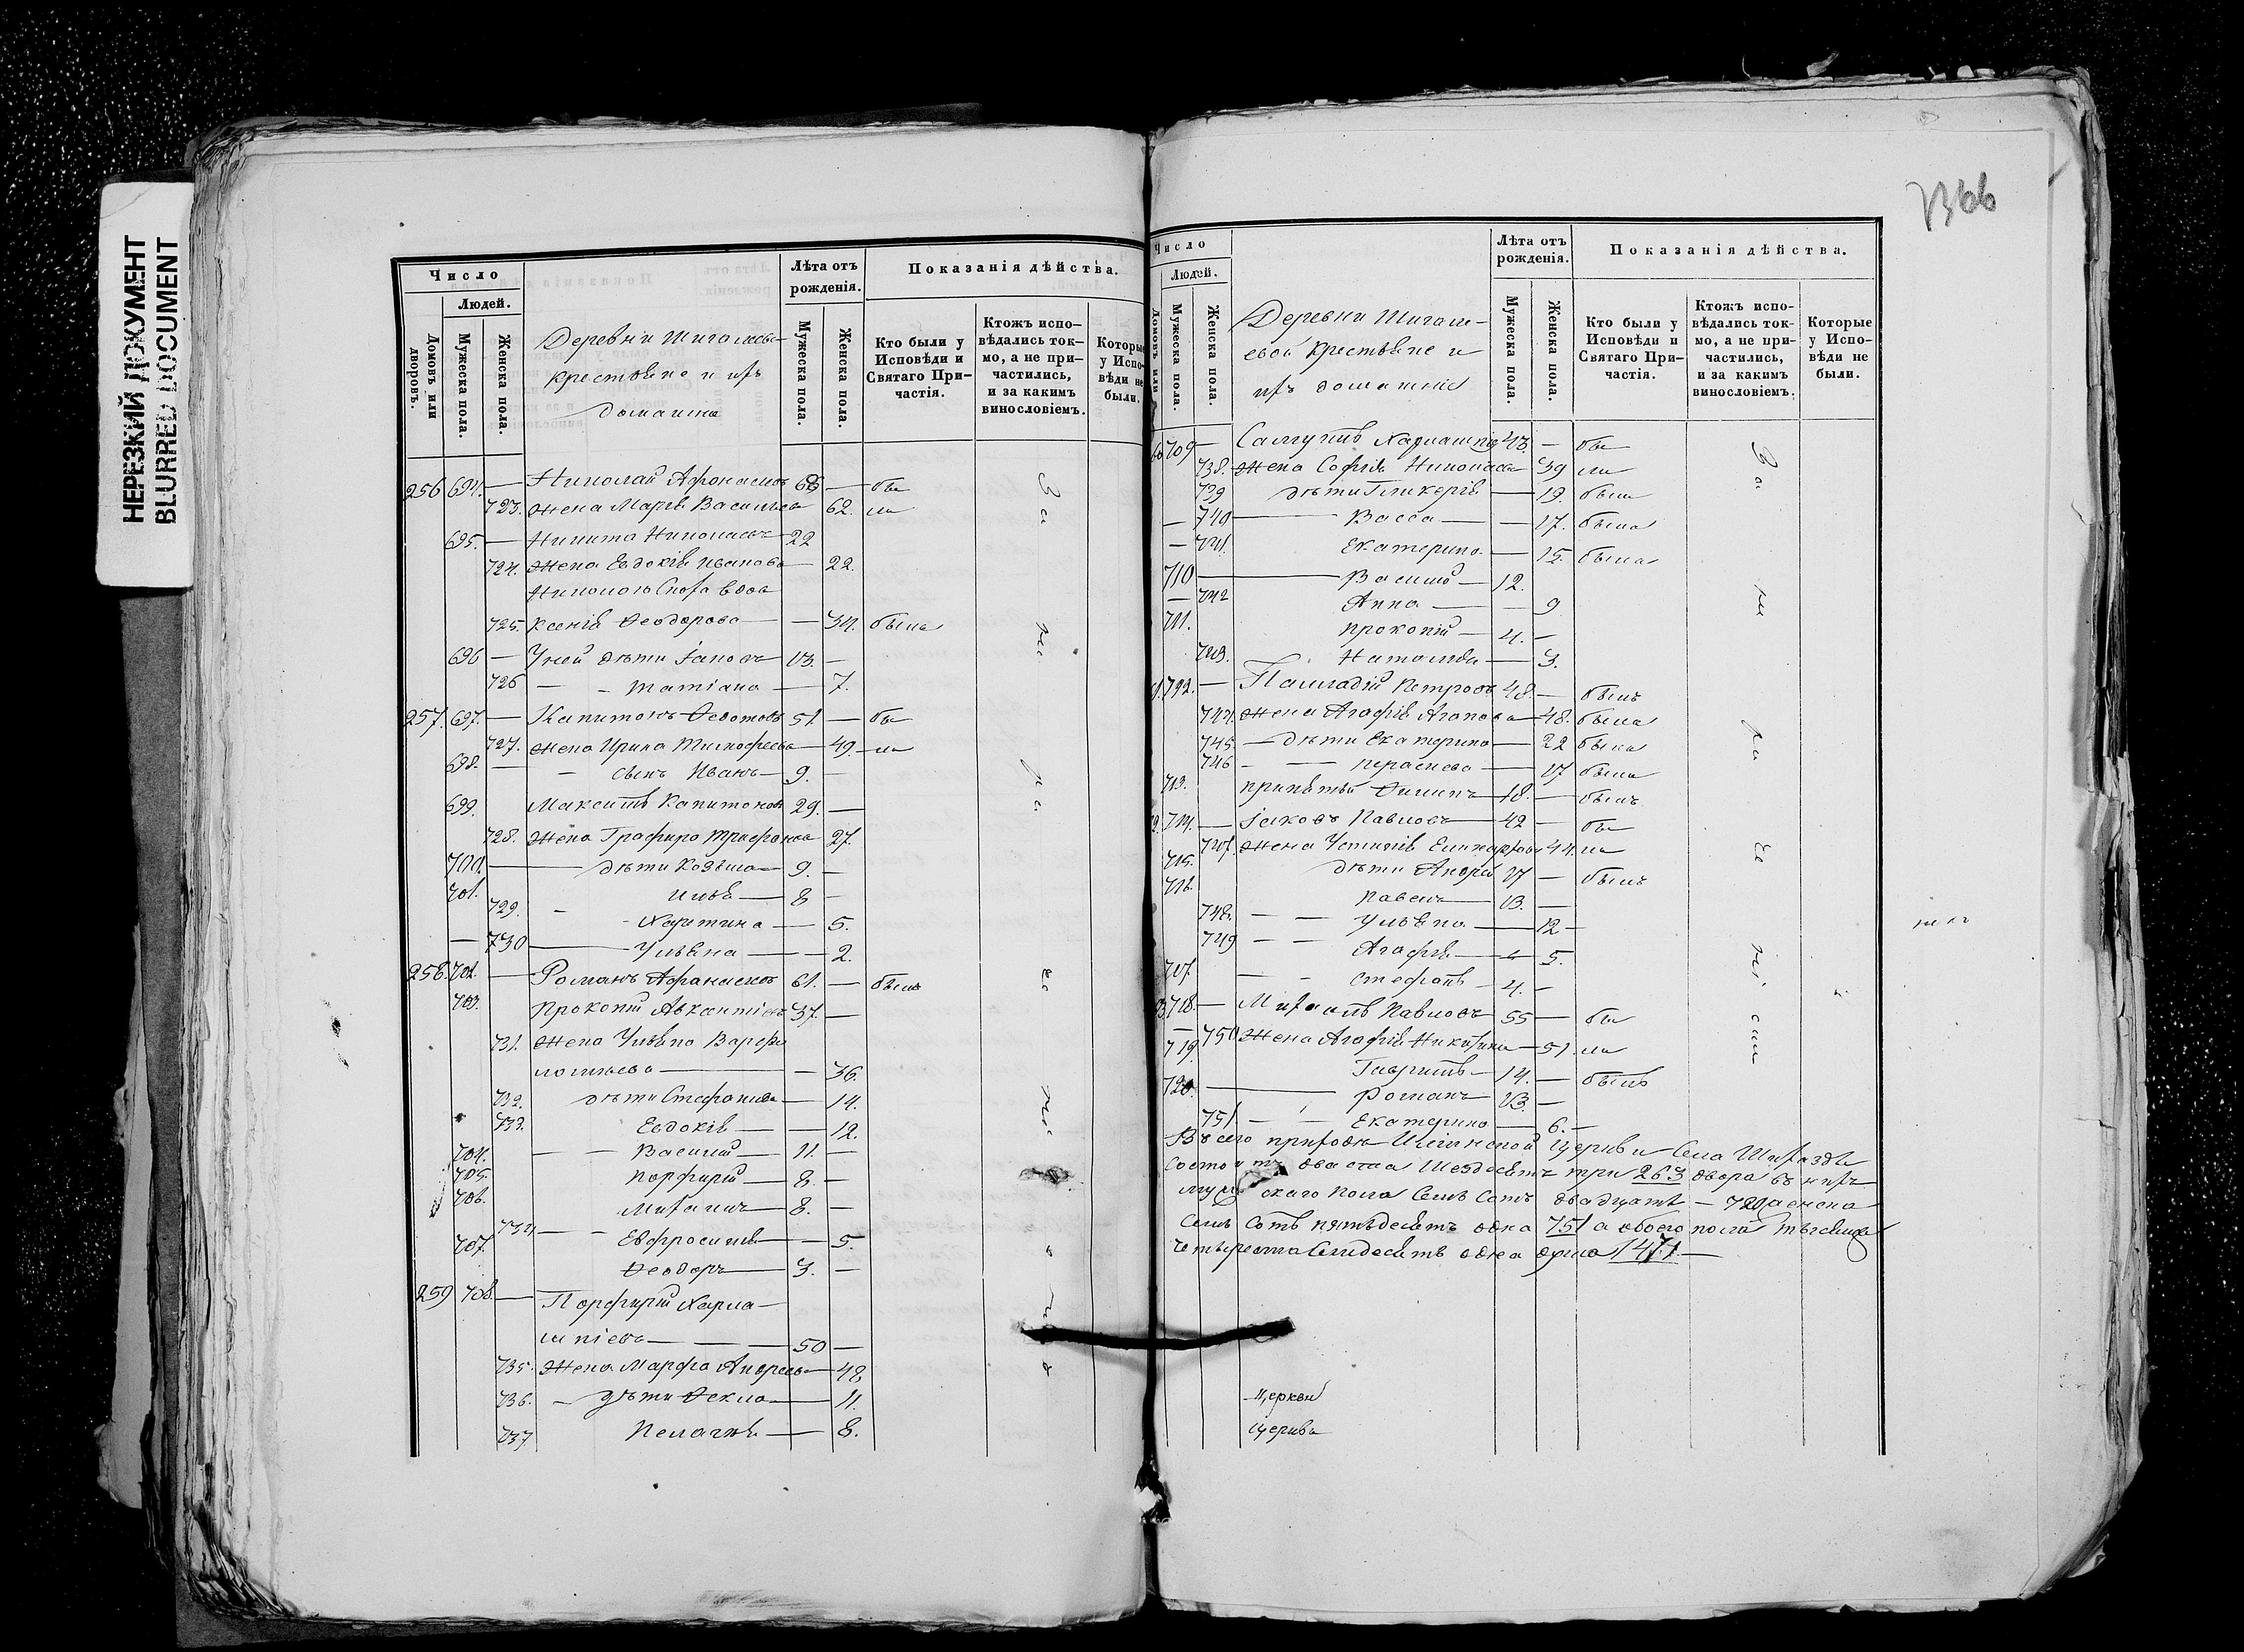 НЕРЕЗКИЙ ДОКУМЕНТ
BLURRED DOCUMENT
Число
Людей.
Домовъ или дворовъ.
Мужеска пола.
Женска пола.
Деревни
крестьяне и ихъ
Лѣта отъ рожденія.
Мужеска пола.
Женска пола.
Показанія дѣйства.
Кто были у Исповѣди и Святаго Причастія.
Ктожъ исповѣдались токмо, а не причастились, и за какимъ винословіемъ.
Которые у Исповѣди не были.
256 694. — Николай 66 — бы
723. Жена Марья Васильева 62. ли
695. — Никита Николаевъ 22
724. Жена Евдокія Иванова — 22.
725. Ксенія Ѳеодорова — 34. была
696 — У ней дѣти 13. —
726 — - Татіана — 7.
257. 697. — Капитонъ Ѳедотовъ 51. — бы
727. Жена Ирина Тимофеева — 49. — ли
698. — - сынъ Иванъ — 9. —
699. Максимъ Капитоновъ 29. —
728. Жена 27.
700. — дѣти Козьма — 9. —
701. Илья — 8 —
729. - - Харитина — 5.
— 730 — Ульяна — 2.
258. 702. — Романъ 61. — былъ
703. Прокопій Авксентіевъ 37. —
731. Жена Ульяна Варфо
ломѣева — 36.
732. дѣти Стефанида — 14.
733. Евдокія — 12.
704. — — Василій — 11. —
705. Порфирій — 8. —
706. 8. —
734 — — Евфросинія — 5.
707. Ѳеодоръ — 3. —
259 708. — Порфирій Харла-
мпіевъ — 50 —
735. Жена Марфа Андреева — 48
736. — дѣти Ѳекла — 11.
737 Пелагія — 8.
1366
Число
Людей.
Домовъ или
Мужеска пола.
Женска пола.
Деревни
евой крестьяне и
ихъ домашніе
Лѣта отъ рожденія.
Мужеска пола.
Женска пола.
Показанія дѣйства.
Кто были у Исповѣди и Святаго Причастія.
Ктожъ исповѣдались токмо, а не причастились, и за какимъ винословіемъ.
Которые у Исповѣди не были.
709 — 43. — бы
738. Жена Софія 39 ли
739 дѣти Гликерія — 19. была
— 740 — Васса — — 17. была
— 741. Екатерина — 15. была
710 — Василій — 12.
— 742 Анна — — 9
711. Прокопій — 4. —
743. Наталія — 3.
712. — Палладій Петровъ 48. — былъ
744. Жена Агафія Агапова — 48. была
745. — дѣти Екатерина — 22 была
746 - — 17 была
713. 18. — былъ
714. — Іаковъ Павловъ — 42 — бы
747. Жена Устинія 44. ли
715. дѣти Андрей 17 — былъ
716. Павелъ — 13. —
748. — — Ульяна — 12 —
749 — — Агафія — 5.
717. - - Стефанъ — 4. —
718. — Павловъ 55 — бы
750 Жена Агафія — 51. ли
719 Гавріилъ — 14. — былъ
720. — Романъ 13. —
751. — — Екатерина — 6. —
Въ сего прихода церкви села
состоитъ двѣста шездесятъ три 263 двора въ нихъ
мужскаго пола семь сотъ двадцать — 720 а женска
семь сотъ пятьдесятъ одна 751 а обоего пола тысяща
четыреста семдесятъ одна душа 1471 —
Церкви
Церкви